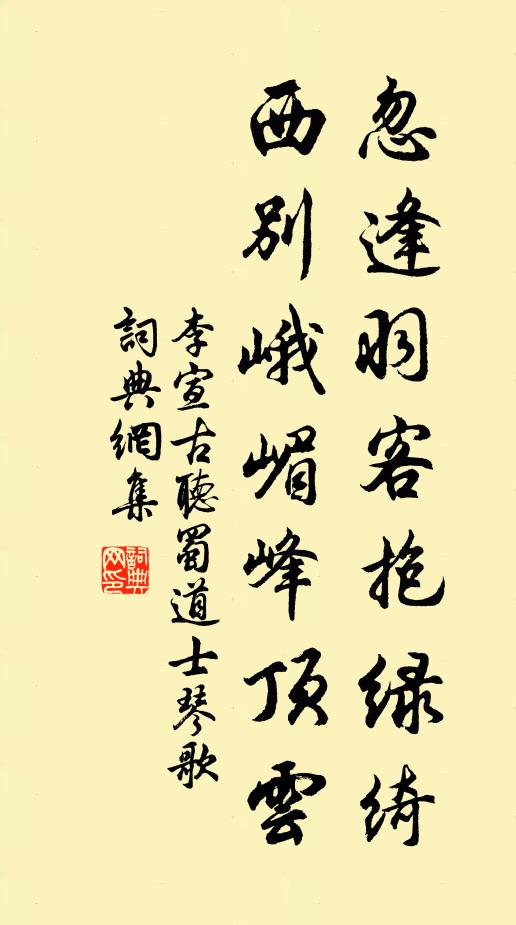 忽逢羽客抱绿绮
西别峨嵋峰顶雲
李宣古聽蜀道士琴歌
詞典網集
詞典网印